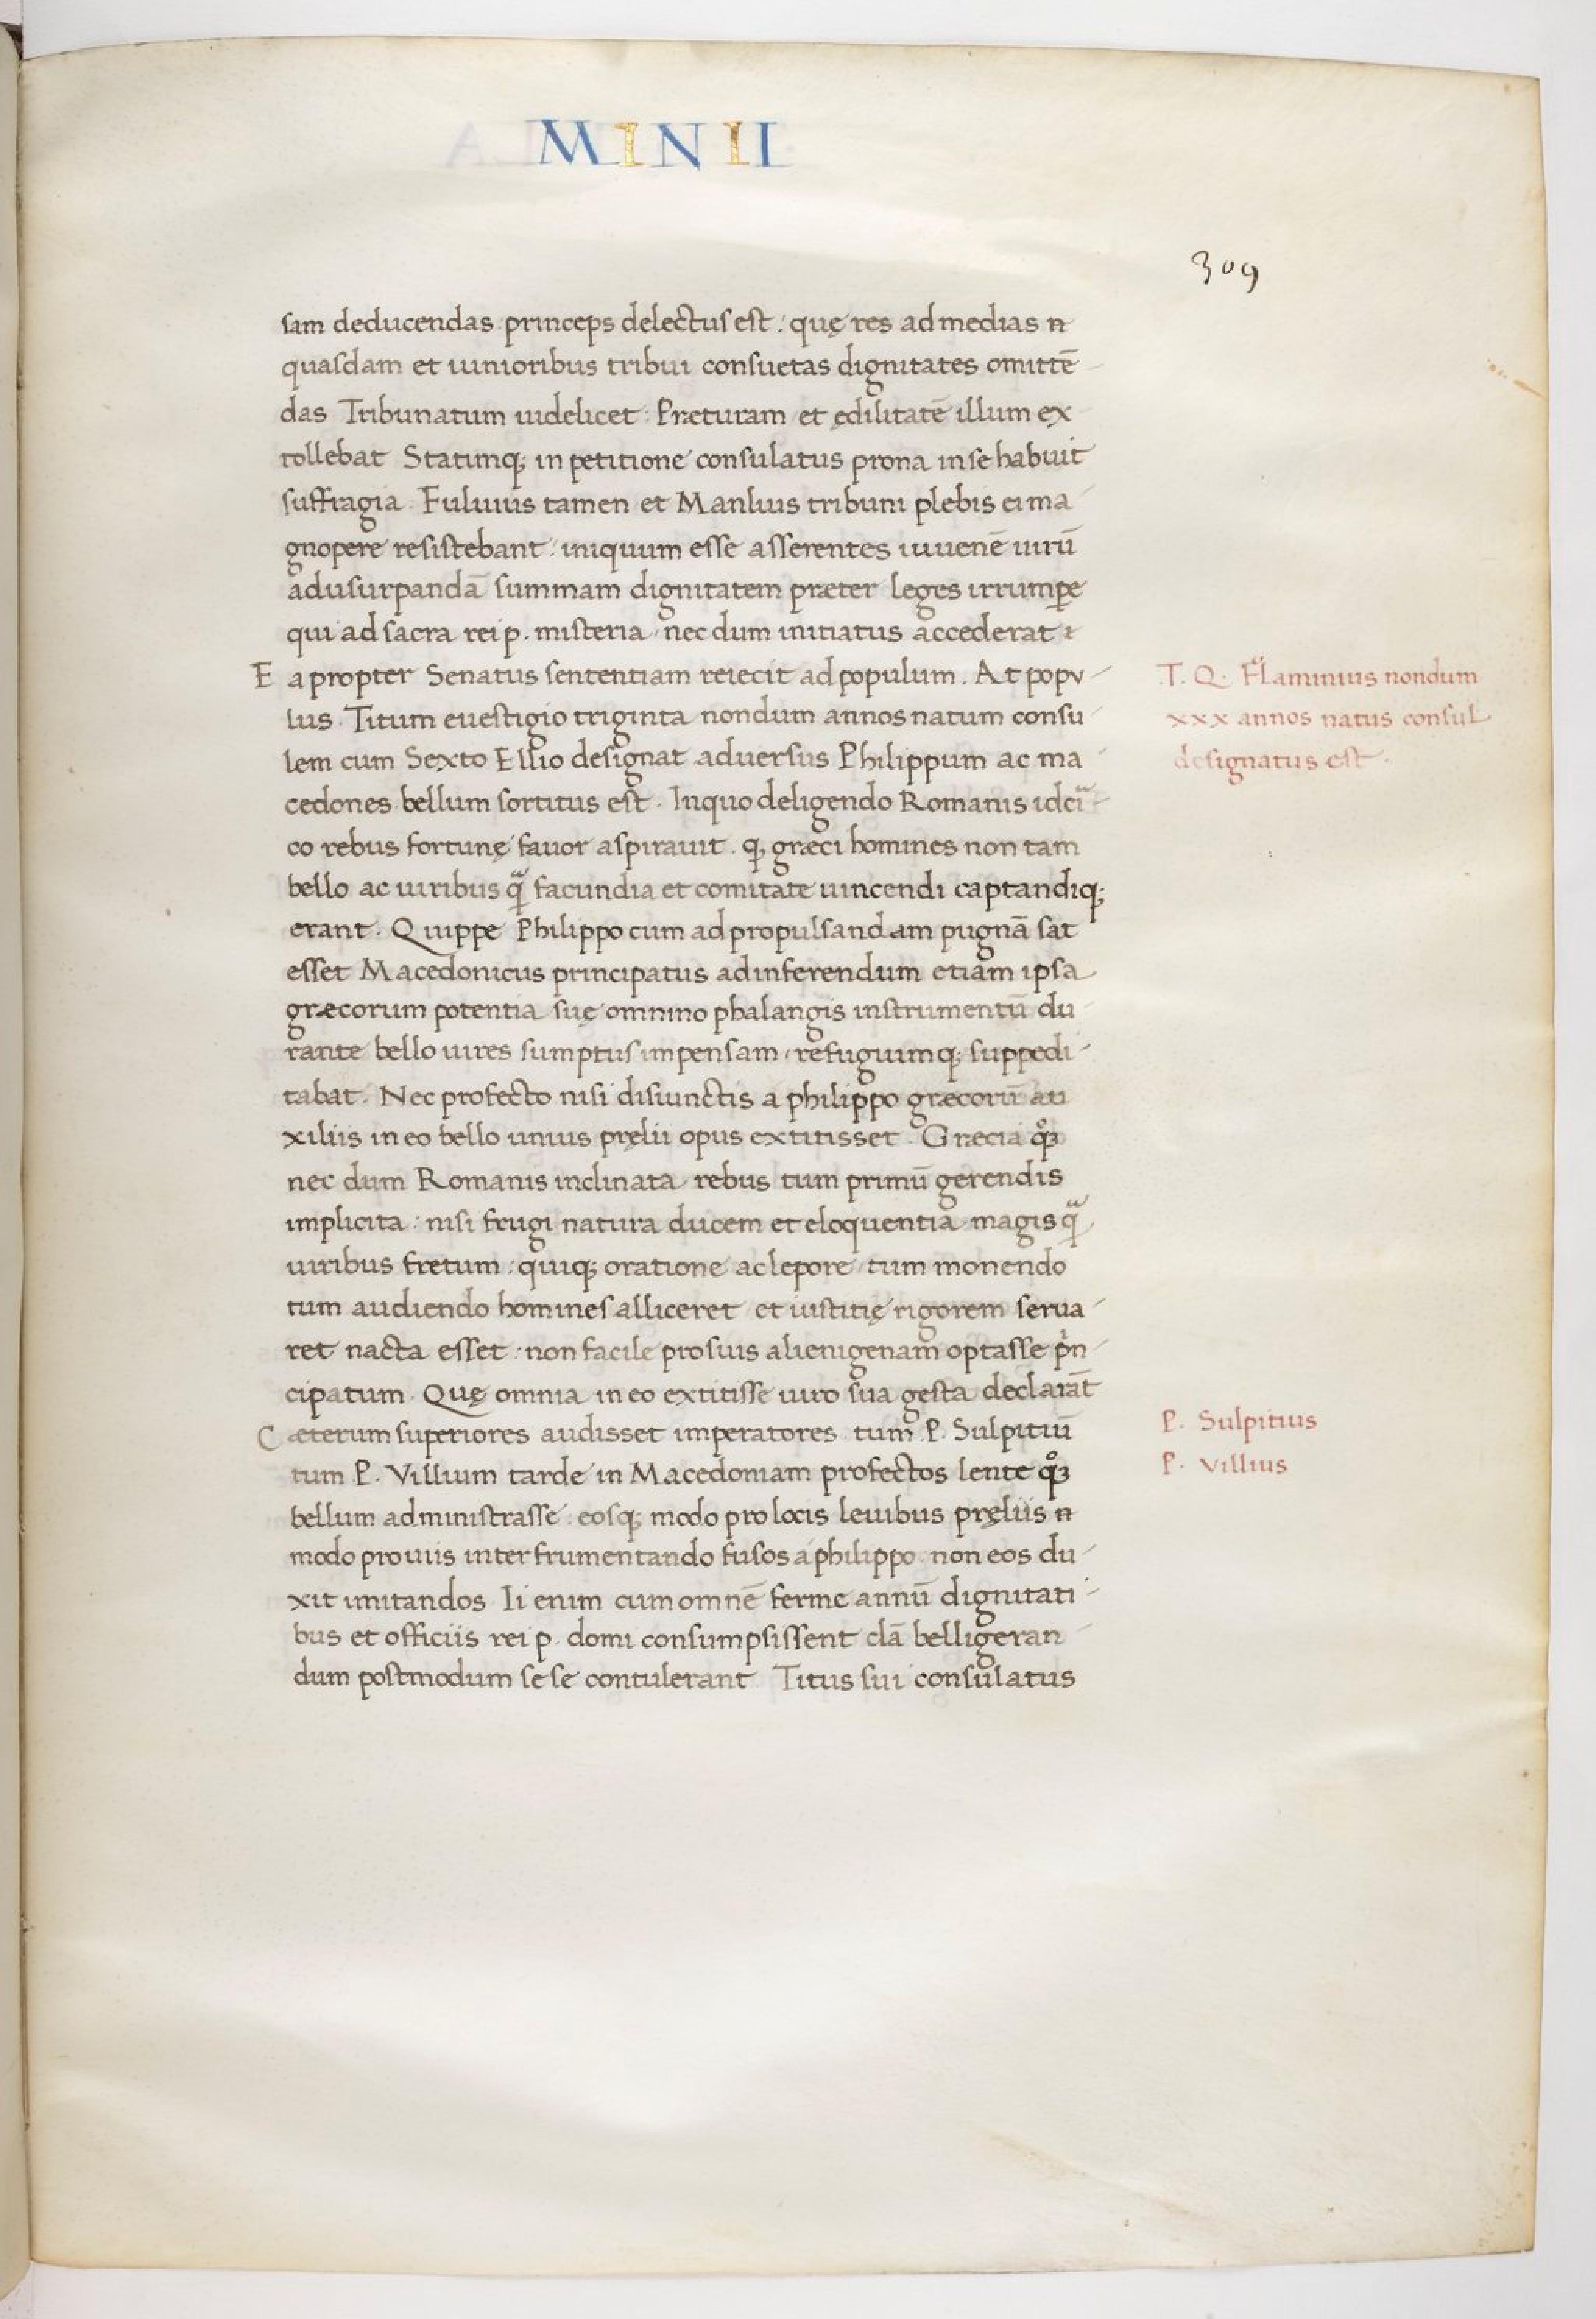 MINII
309
sam deducendas princeps delectus est: quę res ad medias n̄
quasdam et iunioribus tribui consuetas dignitates omittē
das Tribunatum uidelicet: Præturam et ędilitatē illum ex
tollebat Statimq; in petitione consulatus prona in se habuit
suffragia. Fuluius tamen et Manlius tribuni plebis ei ma
gnopere resistebant: iniquum esse asserentes iuuenē uirū
ad usurpandā summam dignitatem præter leges irrumpe
qui ad sacra rei p. misteria nec dum initiatus accederat:
Eapropter Senatus sententiam reiecit ad populum. At popu
lus Titum euestigio triginta nondum annos natum consu
lem cum Sexto Ellio designat aduersus Philippum ac ma
cedones bellum sortitus est. In quo deligendo Romanis idci
co rebus fortunę fauor aspirauit. q; græci homines non tam
bello ac uiribus q̄ facundia et comitate uincendi captandiq;
erant. Quippe Philippo cum ad propulsandam pugnā sat
esset Macedonicus principatus ad inferendum etiam ipsa
græcorum potentia suę omnino phalangis instrumentū du
rante bello uires sumptus impensam refugiumq; suppedi
tabat. Nec profecto nisi disiunctis a philippo græcorū au
xiliis in eo bello unius pręlii opus extitisset. Græcia qꝫ
nec dum Romanis inclinata rebus tum primū gerendis
implicita: nisi frugi natura ducem et eloquentia magis q̄
uiribus fretum: quiq; oratione ac lepore tum monendo
tum audiendo homines alliceret et iustitię rigorem serua
ret nacta esset: non facile pro suis alienigenam optasse pn
cipatum. Quę omnia in eo extitisse uiro sua gesta declarāt
Cæterum superiores audisset imperatores tum P. Sulpitiū
tum P. Villium tarde in Macedoniam profectos lente qꝫ
bellum administrasse: eosq; modo pro locis leuibus pręliis n̄
modo pro uiis inter frumentando fusos a philippo non eos du
xit imitandos Ii enim cum omnē ferme annū dignitati
bus et officiis rei p. domi consumpsissent clā belligeran
dum postmodum se se contulerant Titus sui consulatus
T. Q. Flaminius nondum
xxx annos natus consul
designatus est.
P. Sulpitius
P. Villius